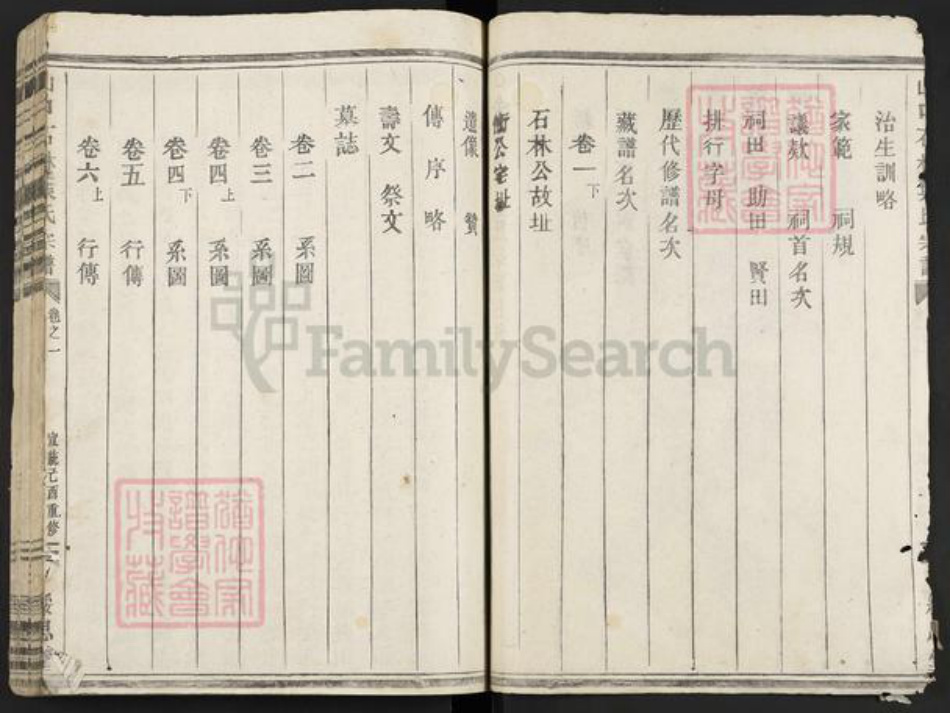 治生訓略
家範 祠規
議欵 祠首名次
祠田 助田 賢田
排行字母
歷代修譜名次
藏譜名次
卷一下
石林公故址
衝公宅址
遺像 贊
傳 序 略
壽文 祭文
墓誌
卷二 系圖
卷三 系圖
卷四上 系圖
卷四下 系圖
卷五 行傳
卷六上 行傳
卷之一
宣統己酉重修
FamilySearch